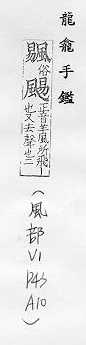 龍龕手鑑
俗颺正音羊風所飛
也又去聲也二
(風部V1 P43 A10)